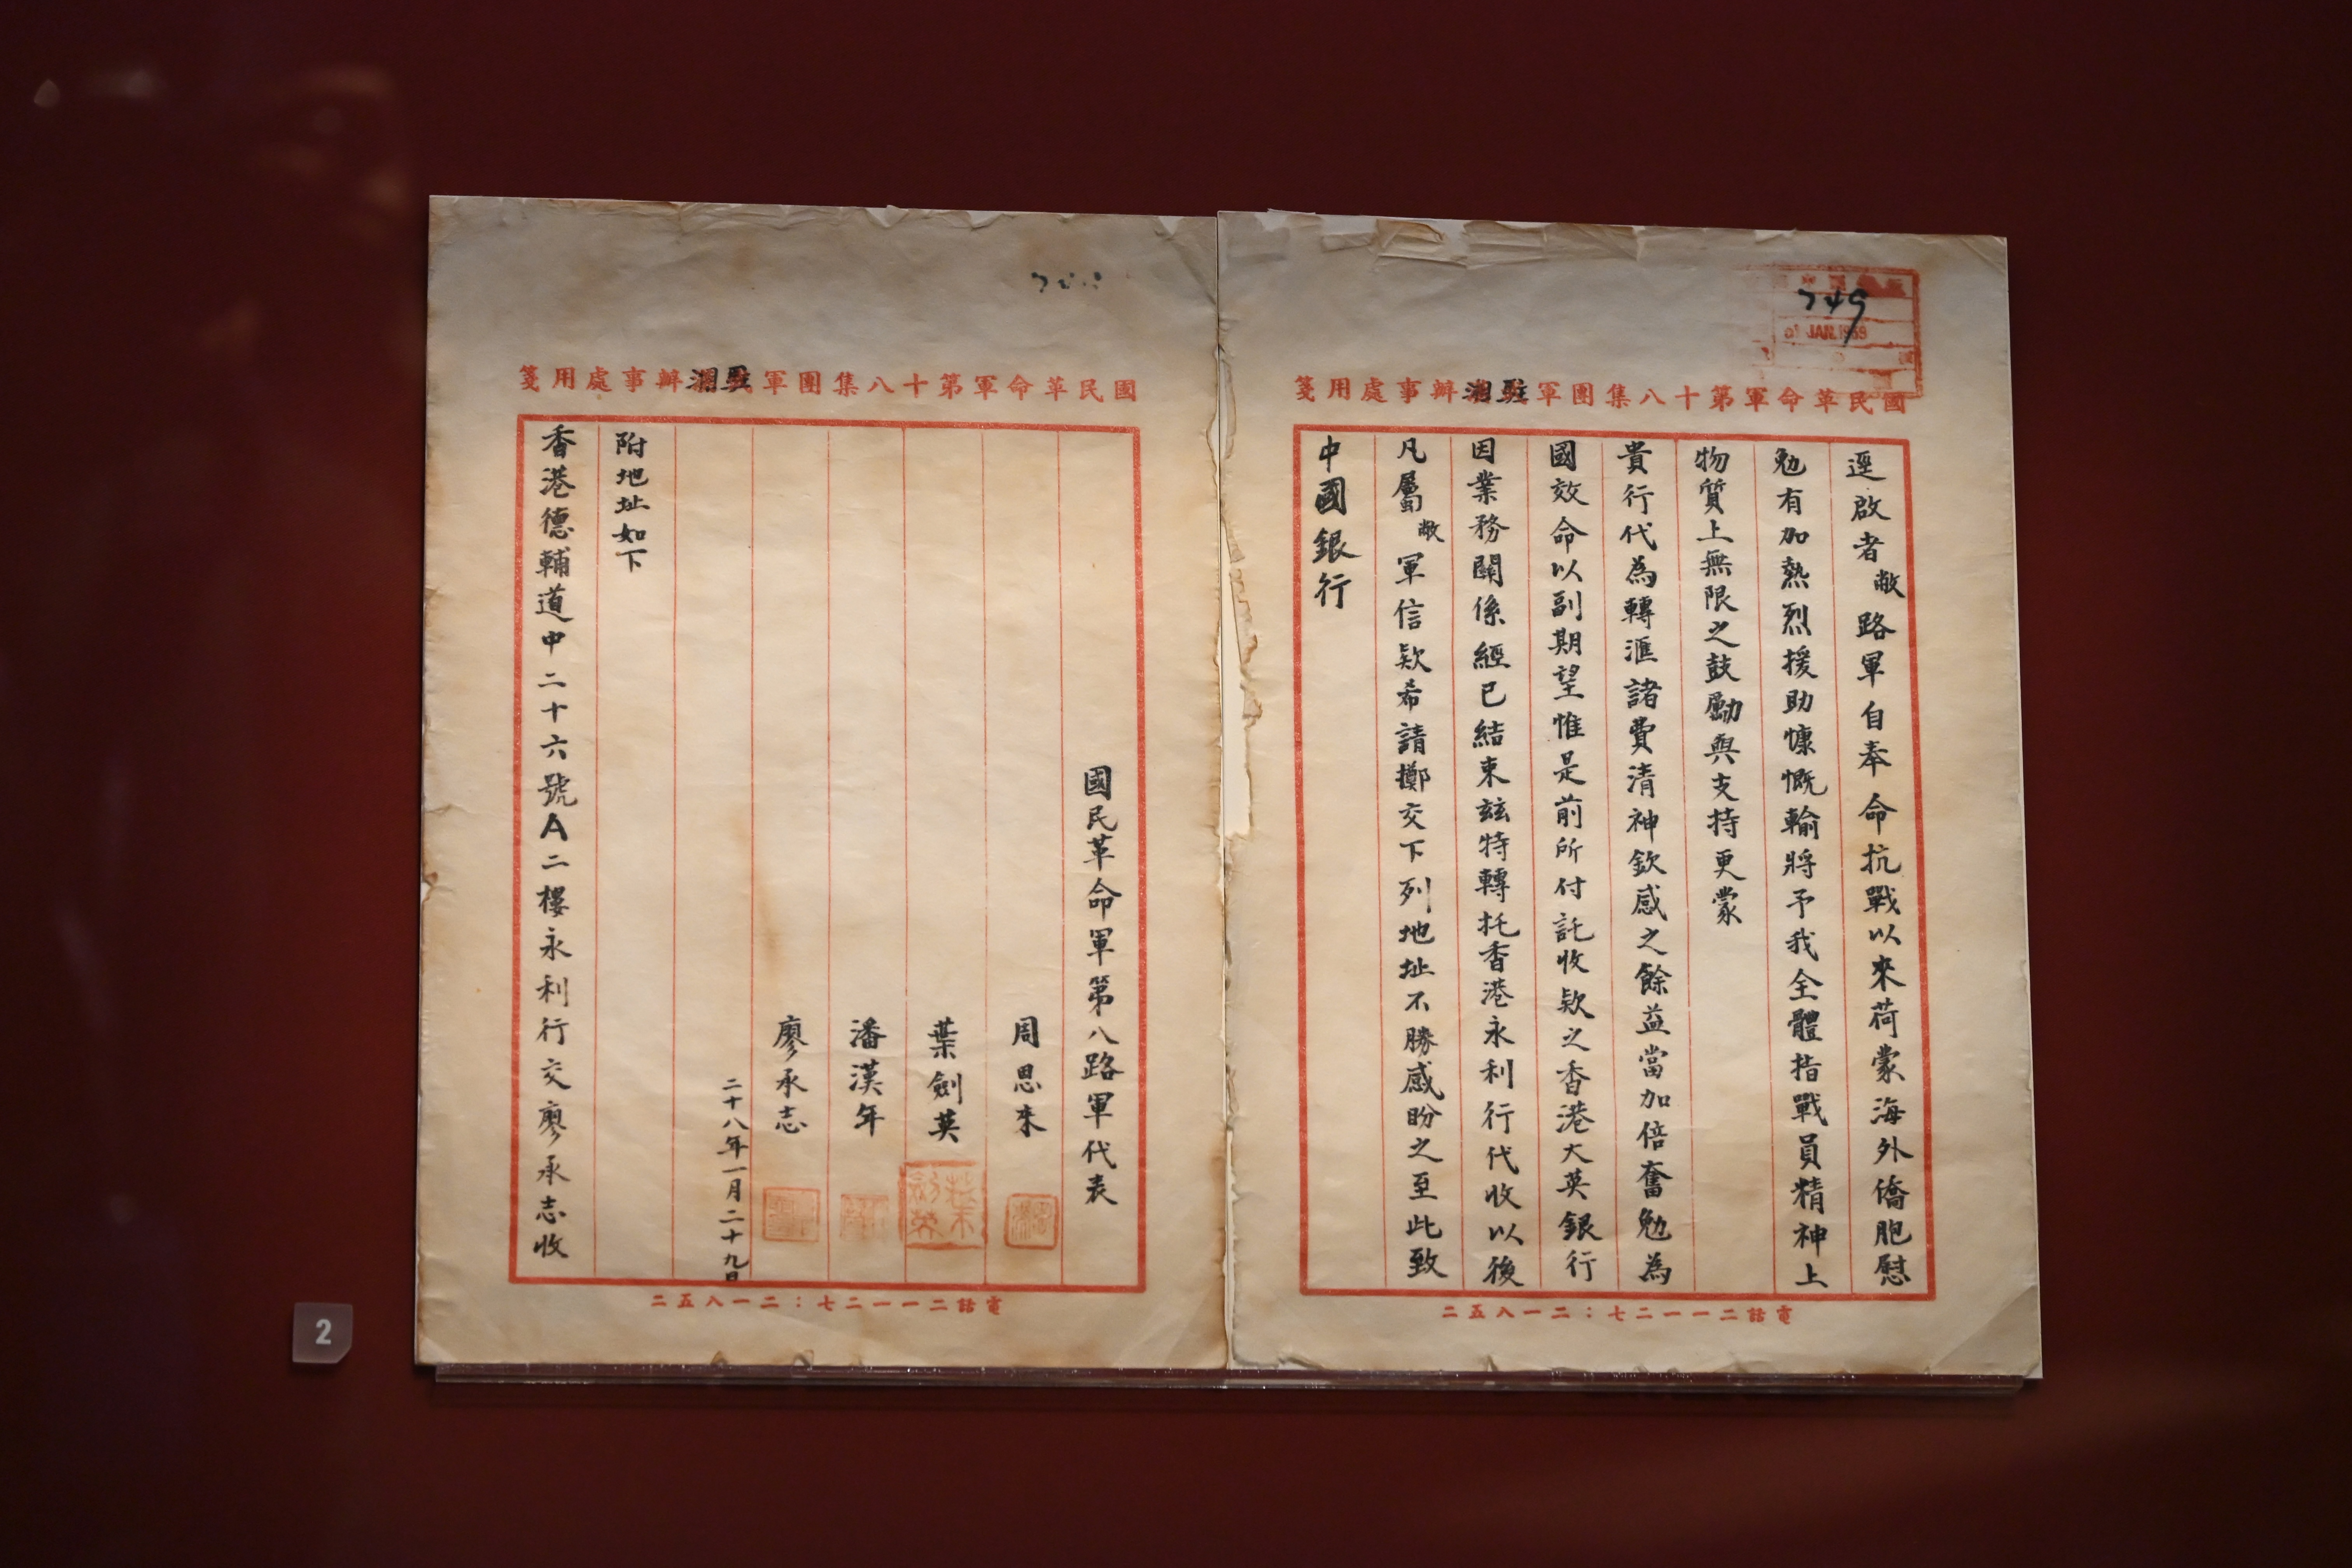 國民革命軍第十八集團軍駐湘辦事處用箋
749
JAN. 1939
逕啟者敝路軍自奉命抗戰以來荷蒙海外僑胞慰
勉有加熱烈援助慷慨輸將予我全體指戰員精神上
物質上無限之鼓勵與支持更蒙
貴行代為轉滙諸費清神欽感之餘益當加倍奮勉為
國效命以副期望惟是前所付託收欵之香港大英銀行
因業務關係經已結束玆特轉托香港永利行代收以後
凡屬敝軍信欵希請擲交下列地址不勝感盼之至此致
中國銀行
電話二一一二七：二一八五二
國民革命軍第十八集團軍駐湘辦事處用箋
國民革命軍第八路軍代表
周恩來
葉劍英
潘漢年
廖承志
二十八年一月二十九日
附地址如下
香港德輔道中二十六號A二樓永利行交廖承志收
電話二一一二七：二一八五二
2